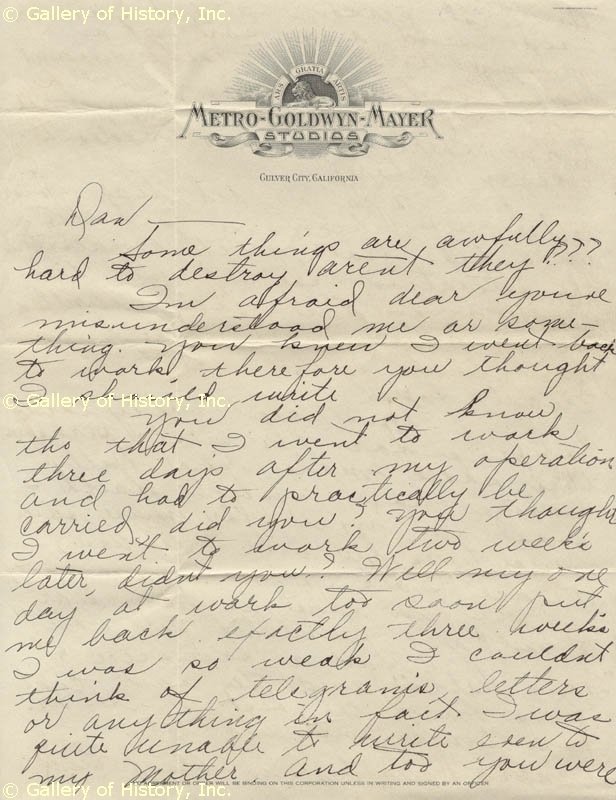 © Gallery of History, Inc.
ARS GRATIA ARTIS
METRO-GOLDWYN-MAYER
STUDIOS
CULVER CITY, CALIFORNIA
Dan —
Some things are awfully
hard to destroy arent they???
I'm afraid dear you've
misunderstood me or some-
thing. You knew I went back
to work, therefore you thought
I should write
© Gallery of History, Inc.
You did not know
tho that I went to work
three days after my operation
and had to practically be
carried, did you? You thought
I went to work two weeks
later, didn't you? Well my one
day at work too soon put
me back exactly three weeks
I was so weak I couldn't
think of telegrams, letters
or anything in fact I was
quite unable to write even to
my Mother and too you were
OR WILL BE BINDING ON THIS CORPORATION UNLESS IN WRITING AND SIGNED BY AN OFFICER
© Gallery of History, Inc.